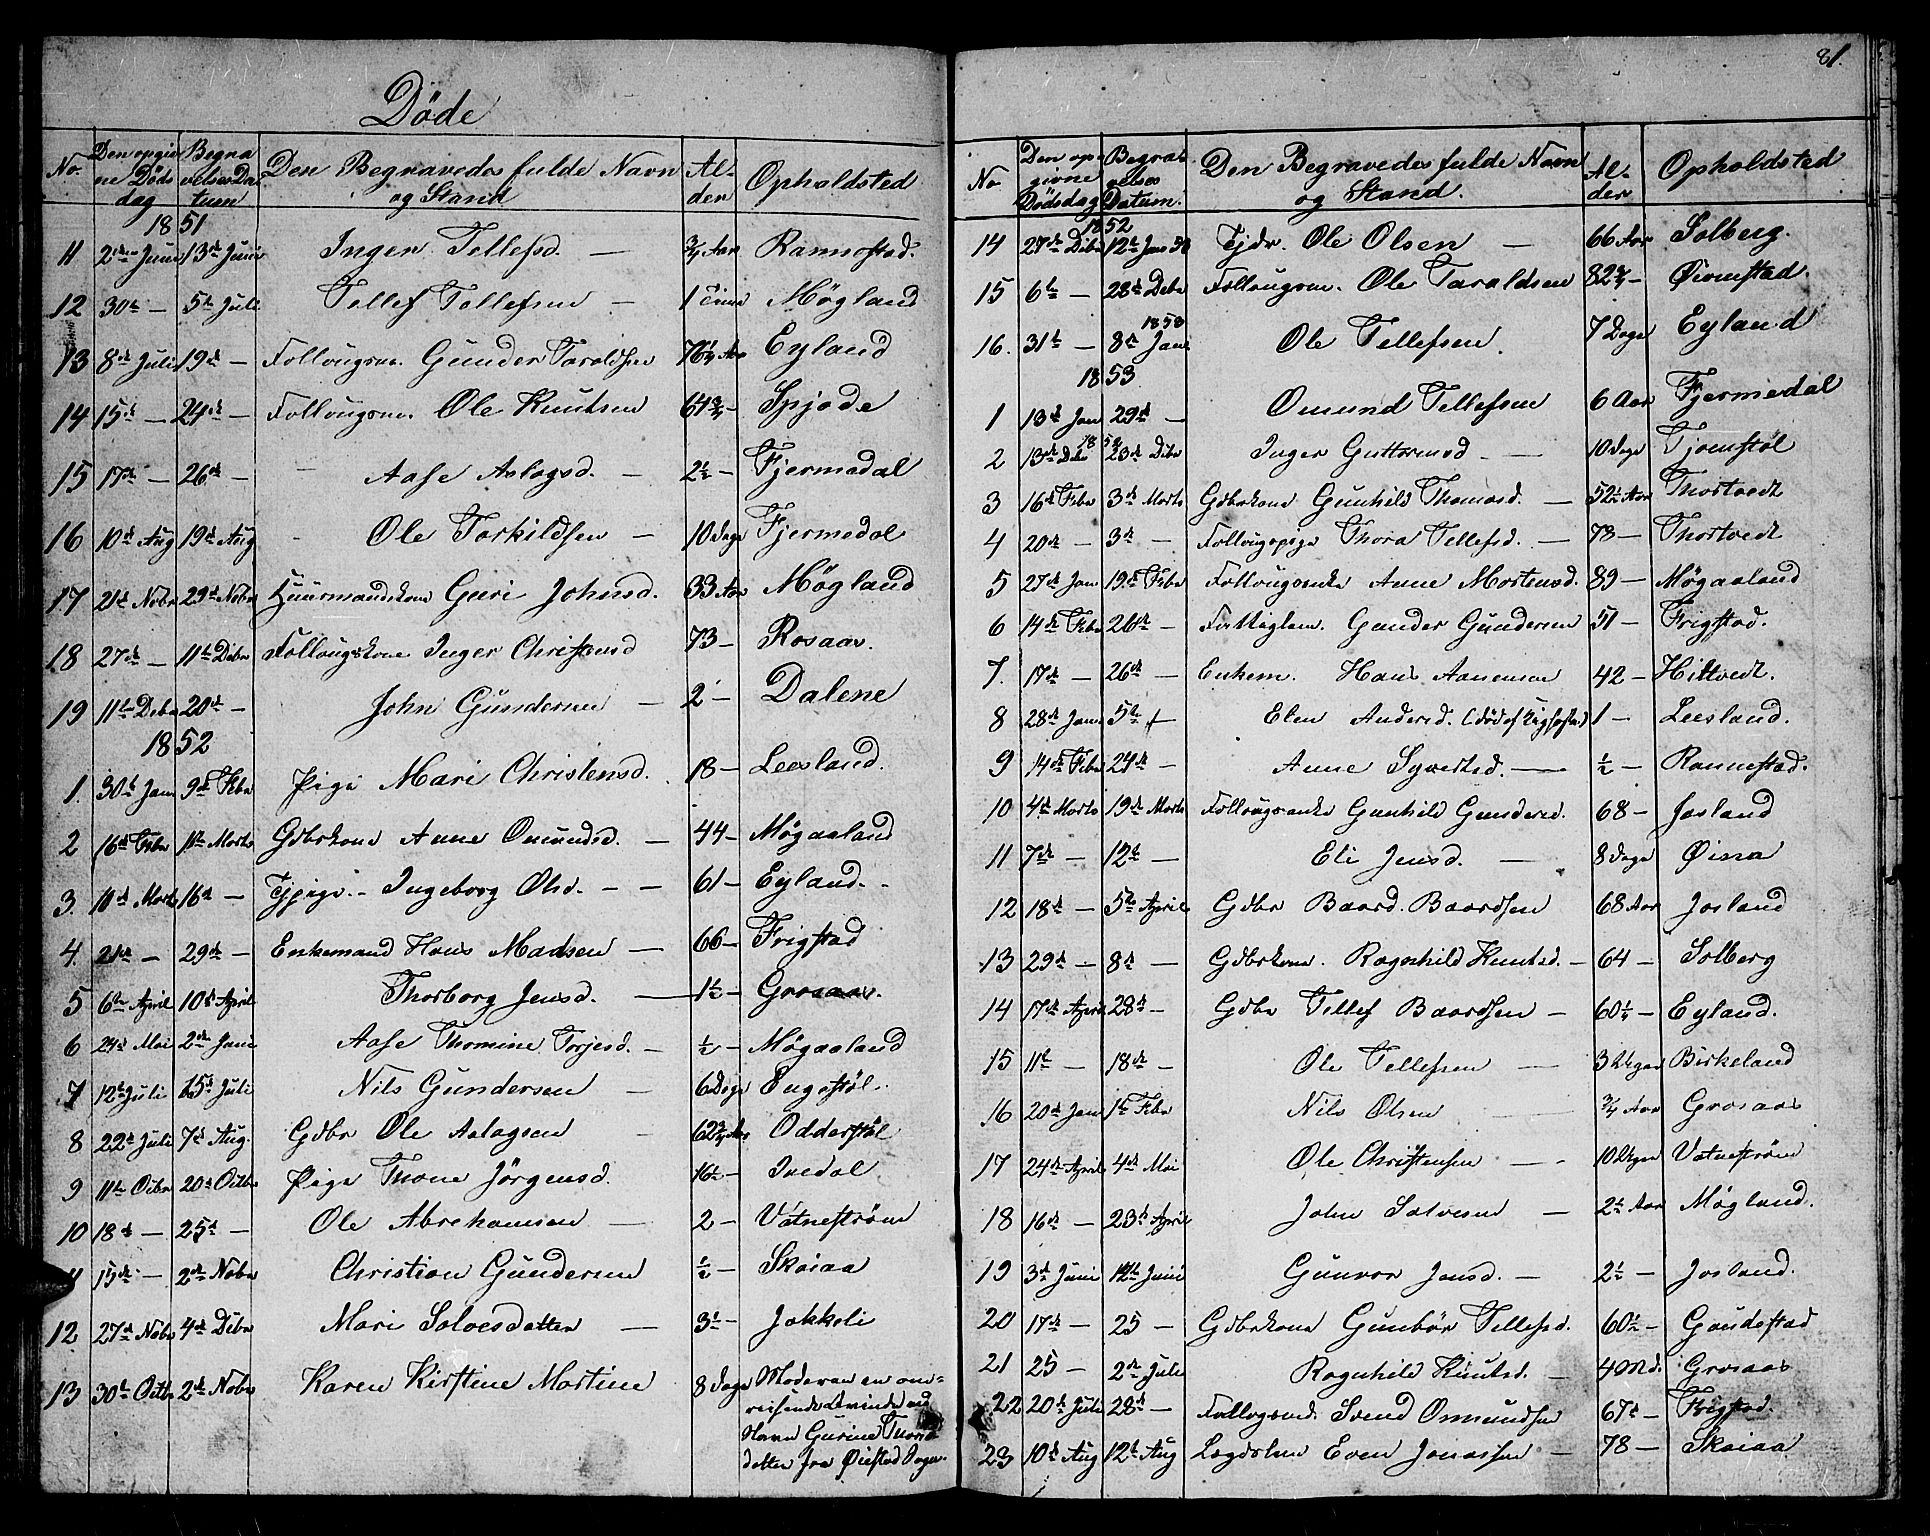 Døde
No. Den opgivne Døds dag Begravelses Datum Den Begravedes fulde Navn og Stand Alder Opholdsted
1851
11 2den Juni 13de Juni Inger Tellefsd. — 3/4 Aar Rannestad.
12 30te — 5te Juli Tellef Tellefsen — 1 Time Møgland
13 8de Juli 19de — Follougsm. Gunder Taraldsen 76 1/4 Aar Eyland
14 15de — 24de — Follougsm. Ole Knutsen 64 3/4 — Spjøde
15 17de — 26de — Aase Aslagsd. — 2 1/2 — Fjermedal
16 10de Aug 19de Aug Ole Torkildsen — 10 Dage Fjermedal
17 21de Nobr 29de Nobr Huusmandskone Guri Johnsd. 33 Aar Møgland
18 27de — 11te Debr Follougskone Inger Christensd 73 — Rosaas.
19 11te Debr 20de — John Gundersen — 2 — Dalene
1852
1. 30te Jan 9de Febr Pige Mari Christensd. 18 — Leesland.
2 16de Febr 11te Marts Gdbrkone Anne Omundsd. — 44 — Møgaaland
3. 10de Marts 16de — Tjpige. Ingeborg Olsd. — — 61 — Eyland.
4. 21de — 29de — Enkemand Hans Madsen — 66 — Frigstad
5 6te April 10de April Thorborg Jensd. — 1 1/2 — Grosaas.
6 24de Mai 2den Juni Aase Thomine Torjesd. — 1/2 — Møgaaland
7 12te Juli 15de Juli Nils Gundersen — 6 Dage Engestøl.
8 22de Juli 7de Aug. Gdbr Ole Aslagsen — 62 3/4 Aar Odderstøl
9 11te Octbr 20de Octbr Pige Thone Jörgensd. 16 1/2 — Ivedal
10 18de — 25de — Ole Abrahamsen — 2 — Vatnestrøm
11 15de — 2den Nobr Christian Gundersen 1/2 — Skaiaa
12 27de Nobr 4de Debr Mari Salvesdatter — 3 1/2 — Jokkeli
13 30te Octbr 2de Nobr Karen Kirstine Martine 8 Dage Moderen en om-
reisende Qvinde ved
Navn Gurine Thors-
datter fra Øiestad Sogn.
81.
No Den opgivne Dødsdag Begravelses Datum. Den Begravedes fulde Navn og Stand. Alder Opholdsted
1852
14 27de Debr 12te Jan 53 Tjdr. Ole Olsen — 66 Aar Solberg.
15 6te — 28de Debr Follougsm. Ole Taraldsen 82 3/4 — Øivnstad.
1853
16. 31te — 8de Jan Ole Tellefsen. 7 Dage Eyland
1853
1 13de Jan 29de — Omund Tellefsen 6 Aar Fjermedal
1852
2 13de Debr 23de Debr Inger Guttormsd — 10 Dage Tjomstøl
3 16de Febr 3de Marts Gdbrkone Gunhild Thomasd. — 52 1/2 Aar Thortvedt
4 20de — 3de — Follougspige Thora Tellefsd. — 78 — Thortvedt
5 27de Jan 19de Febr Follougsenke Anne Mortensd. 89 — Møgaaland
6 14de Febr 26de — Fattiglem. Gunder Gundersen 51 — Frigstad.
7. 17de — 26de — Enkem. Hans Aanensen 42 — Hiltvedt.
8 28de Jan. 5te — Elen Andersd. 1 — Leesland.
9 14de Febr 24de — Anne Syvertsd. — 1/2 — Rannestad.
10 4de Marts 19de Marts Follougsenke Gunhild Gundersd. 68 — Josland
11 7de — 12te — Eli Jensd. — 8 Dage Øina
12 18de — 5te April Gdbr Baard. Baardsen 68 Aar Josland
13 29de — 8de — Gdbrkone. Ragnhild Knutsd. — 64 — Solberg
14 17de April 28de — Gdbr Tellef Baardsen — 60 1/2 — Eyland.
15 11te — 18de — Ole Tellefsen — 3 Uger Birkeland
16 20de Jan 1te Febr Nils Olsen — 3/4 Aar Grosaas
17 24de April 4de Mai Ole Christensen — 10 Uger Vatnestrøm
18 16de — 23de April John Salvesen — 2 1/2 Aar Møgland.
19 3de Juni 12te Juni Gunvor Jensd. — 2 1/2 — Josland.
20 17de — 25 — Gdbrkone Gunbör Tellefsd. 60 1/2 — Gaudestad
21 25 — 2de Juli Ragnhild Knutsd. — 4 Md. Grosaas
22 20de Juli 28de — Follogsmd. Svend Ommundsen 67 — Frigstad.
23 10de Aug 12te Aug Lægdslem Even Jonassen — 78 — Skaiaa